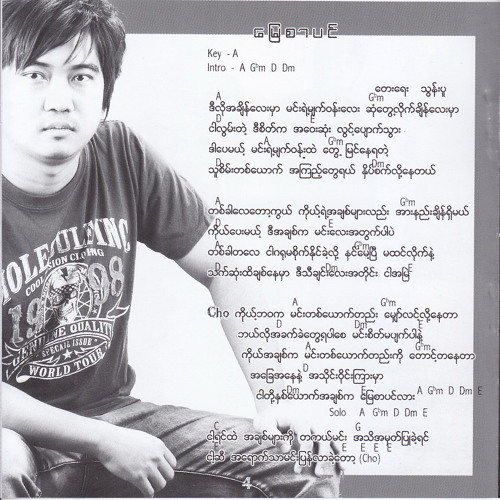 မြေစာပင်
Key - A
Intro - A G♭m D Dm
တေးရေး သွန်းပူ
A G♭m
ဒီလိုအချိန်လေးမှာ မင်းရဲ့မျက်ဝန်းလေး ဆုံတွေ့လိုက်ချိန်လေးမှာ
D Dm
ငါလွမ်းတဲ့ ဒီစိတ်က အဝေးဆုံး လွင့်ပျောက်သွား
A G♭m
ဒါပေမယ့် မင်းရဲ့မျက်ဝန်းထဲ တွေ့မြင်နေရတဲ့
D Dm
သူစိမ်းတစ်ယောက် အကြည့်တွေရယ် နှိပ်စက်လို့နေတယ်
A G♭m
တစ်ခါလေတော့ကွယ် ကိုယ့်ရဲ့အချစ်များလည်း အားနည်းချိန်ရှိမယ်
D Dm
ကိုယ်ပေးမယ့် ဒီအချစ်က မင်းလေးအတွက်ပါပဲ
A G♭m
တစ်ခါတလေ ငါဂရုမစိုက်နိုင်ခဲ့လို့ နှင်မေ့ပြီ မထင်လိုက်နဲ့
D Dm E
သက်ဆုံးထိချစ်နေမှာ ဒီသီချင်းလေးအတိုင်း ငါအမြဲ
A G♭m
Cho ကိုယ့်ဘဝက မင်းတစ်ယောက်တည်း မျှော်လင့်လို့နေတာ
D Dm E
ဘယ်လိုအခက်ခဲတွေ့ရပါစေ မင်းစိတ်မပျက်ပါနဲ့
A G♭m
ကိုယ့်အချစ်က မင်းတစ်ယောက်တည်းကို တောင့်တနေတာ
D
အခြေအနေနဲ့ အသိုင်းဝိုင်းကြားမှာ
Dm E A G♭m D Dm E
ငါတို့နှစ်ယောက်အချစ်က မြေစာပင်လား
Solo A G♭m D Dm E
C G
ငါ့ရင်ထဲ အချစ်များကို တကယ်မင်း အသိအမှတ်ပြုခဲ့ရင်
C E
ငါ့ဆီ အရောက်သာမင်းပြန်လာခဲ့တော့ (Cho)
MOLECULE KING
COOL VISION CLOTHING
1998
GENUINE QUALITY
SPECIAL ISSUE
WORLD TOUR
4